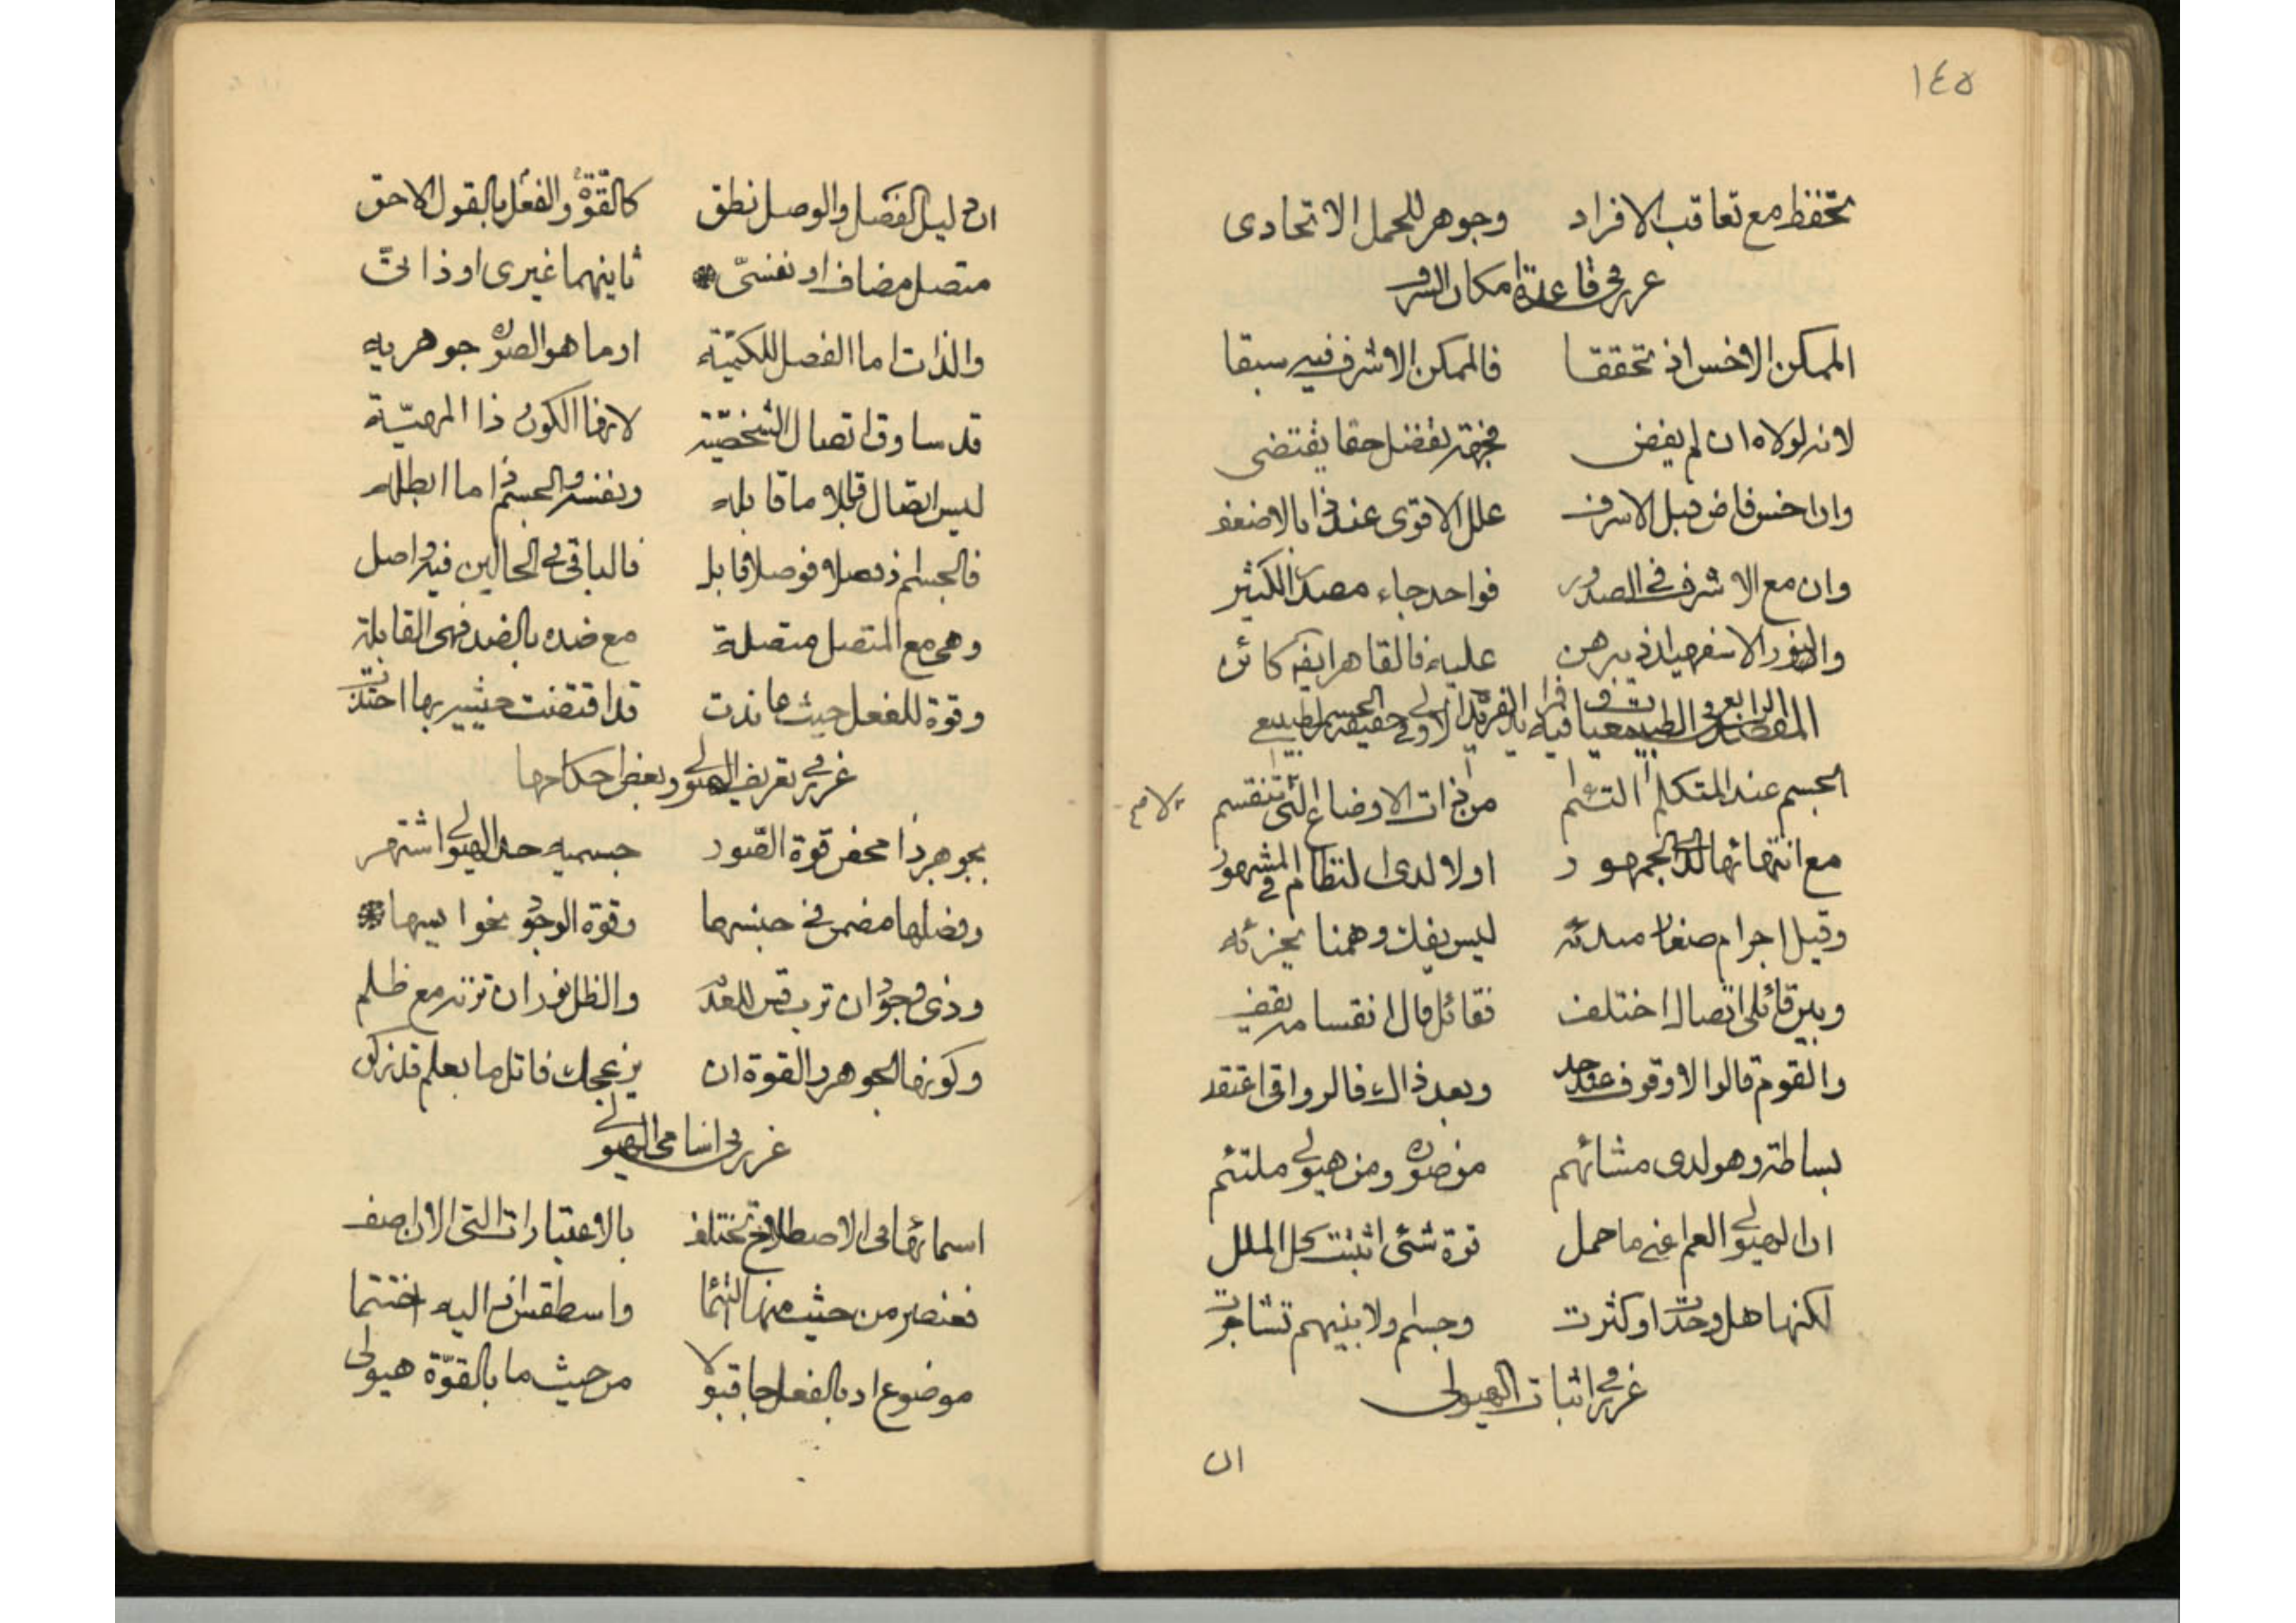 ١٤٥
تحفظ مع تعاقب الافراد وجوهر للحمل الاتحادى
غرر فى قاعدة امكان الاشرف
الممكن الاخس اذ تحققا فالممكن الاشرف فيه سبقا
لانه لولاه ان لم يفض فجهة تفضل حقا يقتضى
وان اخس فاض قبل الاشرف علل الاقوى عند ذا بالاضعف
وان مع الاشرف فى الصدور فواحد جاء مصدر الكثير
والنور الاسفهبد اذ يبرهن عليه فالقاهر ايضا كائن
المقصد الرابع فى الطبيعيات وفيه فرائد الفريدة الاولى فى حقيقة الجسم الطبيعى
الجسم عند المتكلم التئم من ذات الاوضاع التى تنقسم
مع انتهائها لدى الجمهور او لا لدى النظام فى المشهور
وقيل اجرام صغار مبدئه ليس يفك وهمنا يجزئه
وبين قائلى اتصال اختلف فقائل قال انقسامه يقف
والقوم قالوا لا وقوف عند حد وبعد ذالك فالرواقى اعتقد
بساطة وهو لدى مشائهم من صورة ومن هيولى ملتئم
ان الهيولى العم اعنى ما حمل قوة شئ اثبتت كل الملل
لكنها هل وحدت او كثرت وجسم ولا بينهم تشاجرت
غرر فى اثبات الهيولى
ان
ان دليل الفصل والوصل نطق كالقوة والفعل بالقول الاحق
متصل مضاف او نفسىّ ثانيهما غيرى او ذاتىّ
والذات اما الفصل للكمية او ما هو الصورة جوهريه
قد ساوق اتصال الشخصية لانها الكون ذا المهيّة
ليس اتصال قابلا ما قابله ونفسه والجسم ذا ما ابطله
فالجسم ذ فصلا فوصلا قابل فالباقى فى الحالين فيه اصل
وهى مع المتصل متصلة مع ضده بالضد فهى القابلة
وقوة للفعل حيث عاندت قد اقتضت حيثية بها احتذت
غرر فى تعريف الهيولى وبعض احكامها
بجوهر ذا محض قوة الصّور جسميه حد الهيولى اشتهر
وفصلها مضمن فى جنسها وقوة الوجود نحو ايسها
وذى وجود ان ترب قس للعدم والظل نور ان تزنه مع ظلم
وكونها الجوهر والقوة ان يزعجك فاتل ما بعلم قد زكن
غرر فى اسامى الهيولى
اسمائها فى الاصطلاح تختلف بالاعتبارات التى الان اصف
فعنصر من حيث منها التئما واسطقس اذ اليه اختتما
موضوع اذ بالفعل جا قبولا من حيث ما بالقوّة هيولى